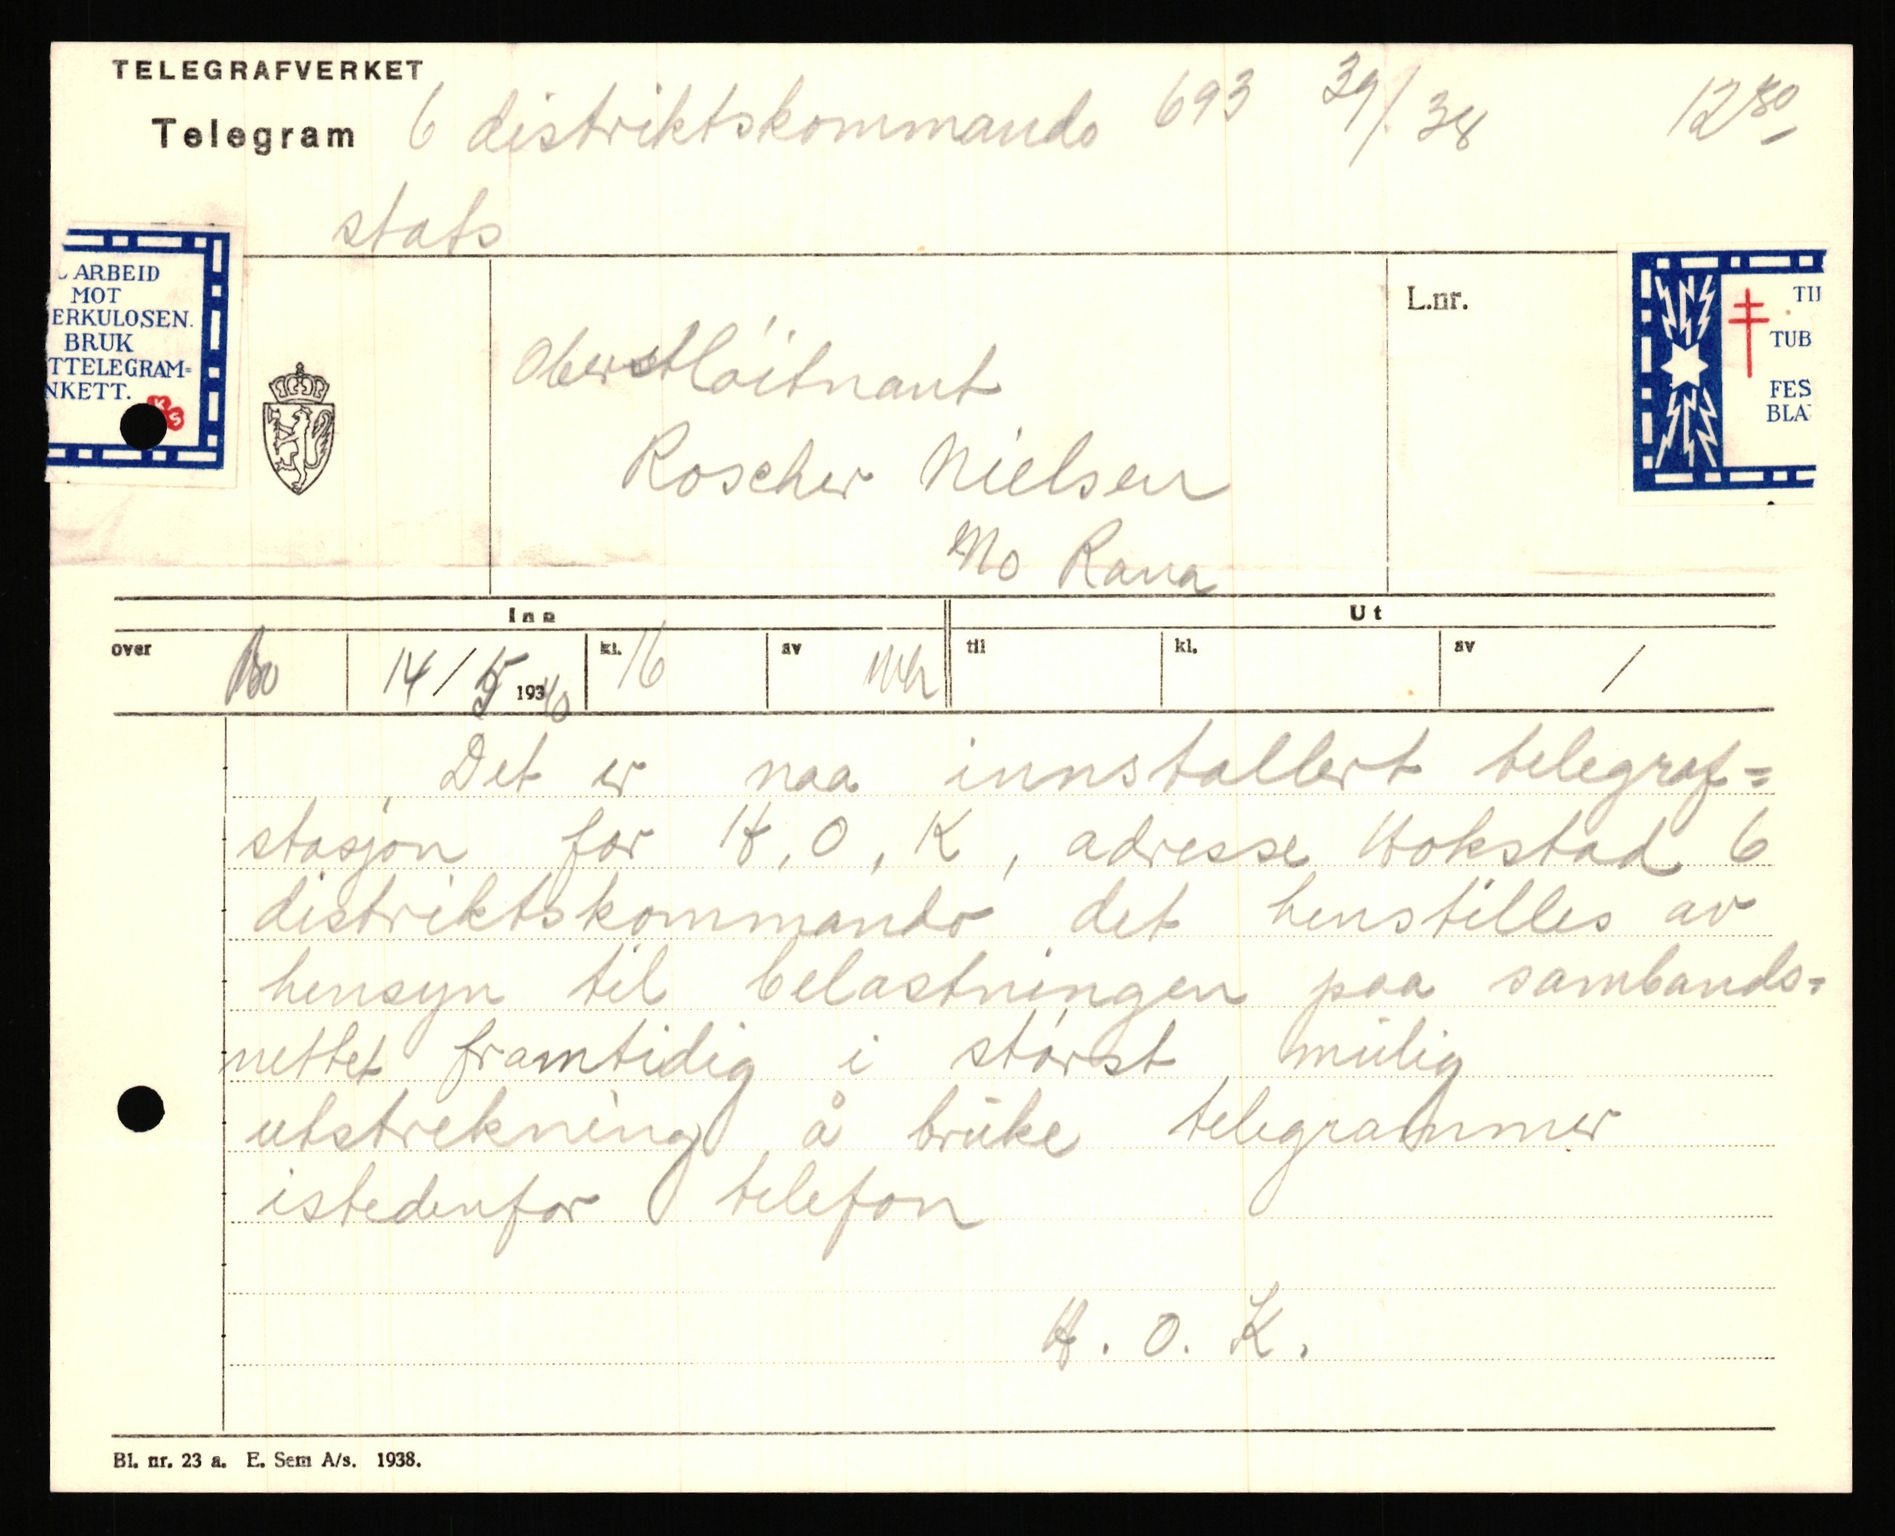 TELEGRAFVERKET
Telegram
6 distriktskommando 693 39/38 12 80
stats
ARBEID
MOT
ERKULOSEN.
BRUK
TTELEGRAM=
NKETT.
KS
L.nr.
TIL
TUB
FES
BLA
Oberstløitnant
Roscher Nielsen
Mo Rana
Inn
Ut
over Bo 14/5 1940 kl. 16 av til kl. av /
Det er naa innstallert telegraf=
stasjon for H.O.K, adresse Hokstad 6
distriktskommando det henstilles av
hensyn til belastningen paa sambands=
nettet framtidig i størst mulig
utstrekning å bruke telegrammer
istedenfor telefon
H. O. K.
Bl. nr. 23 a. E. Sem A/s. 1938.